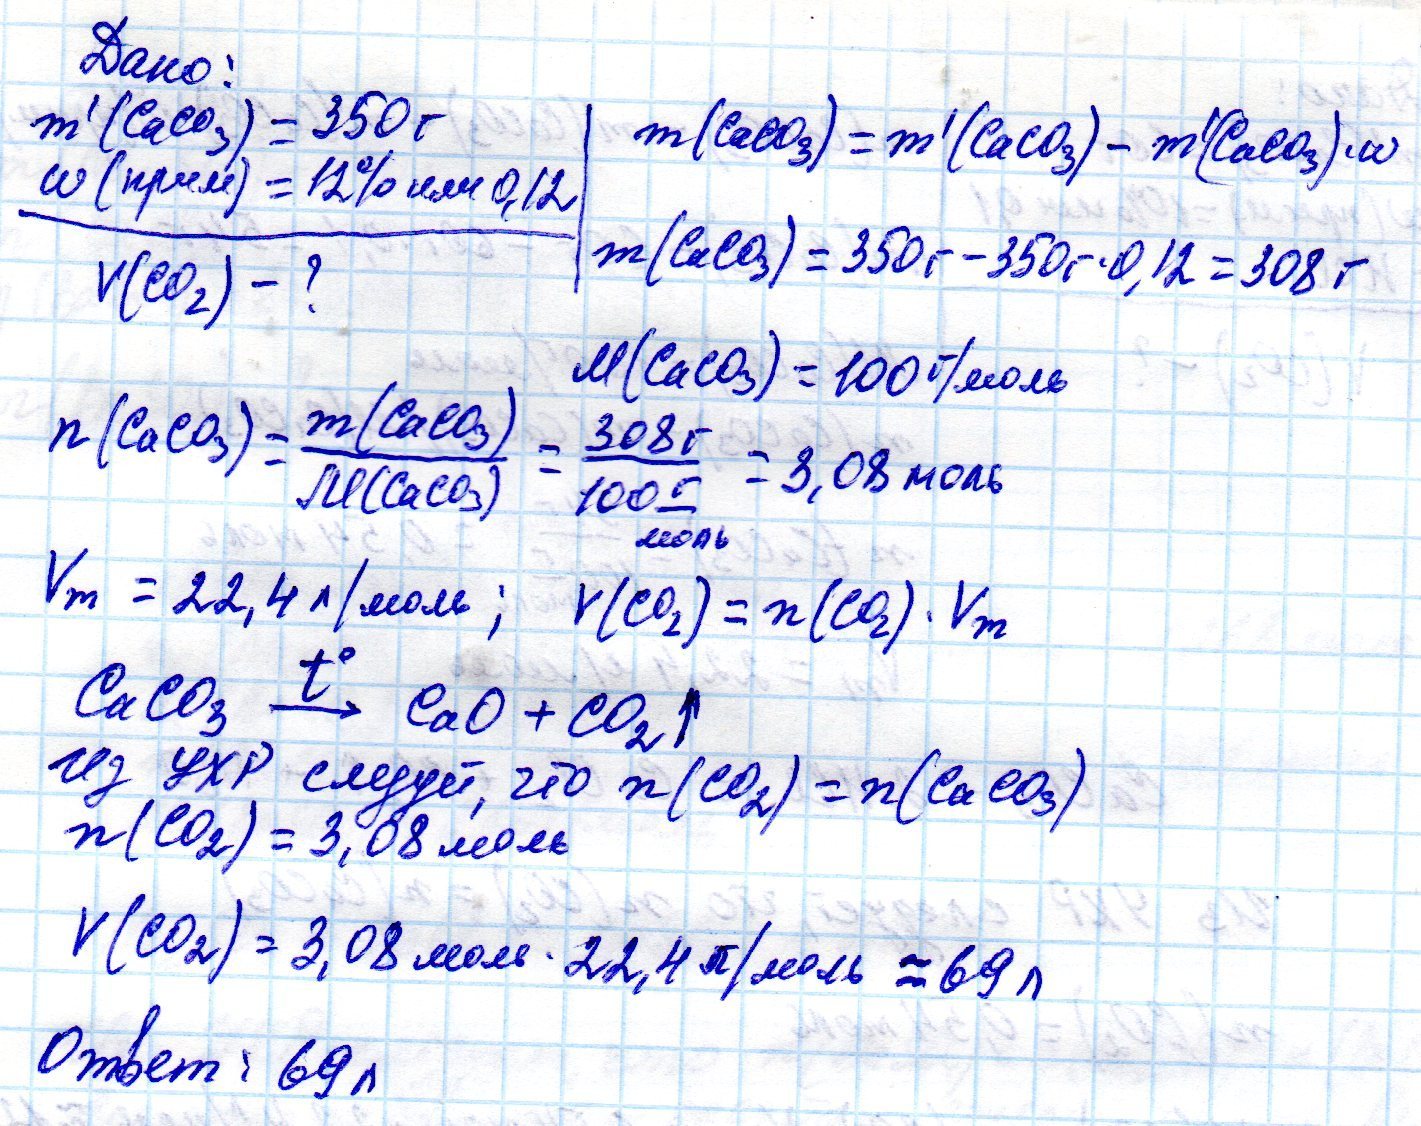 Дано:
m'(CaCO3) = 350 г
w(прим) = 12% или 0,12
V(CO2) - ?
m(CaCO3) = m'(CaCO3) - m'(CaCO3)·w
m(CaCO3) = 350 г - 350 г·0,12 = 308 г
M(CaCO3) = 100 г/моль
n(CaCO3) = m(CaCO3)/M(CaCO3) = 308 г/100 г/моль = 3,08 моль
Vm = 22,4 л/моль; V(CO2) = n(CO2)·Vm
CaCO3 t° → CaO + CO2↑
Из УХР следует, что n(CO2) = n(CaCO3)
n(CO2) = 3,08 моль
V(CO2) = 3,08 моль·22,4 л/моль ≈ 69 л
Ответ: 69 л